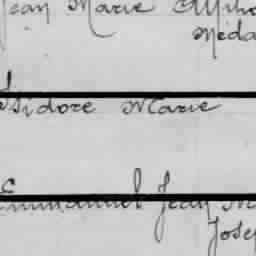 Jean Marie
Méda
Isidore Marie
Emmanuel Jean M
Josep